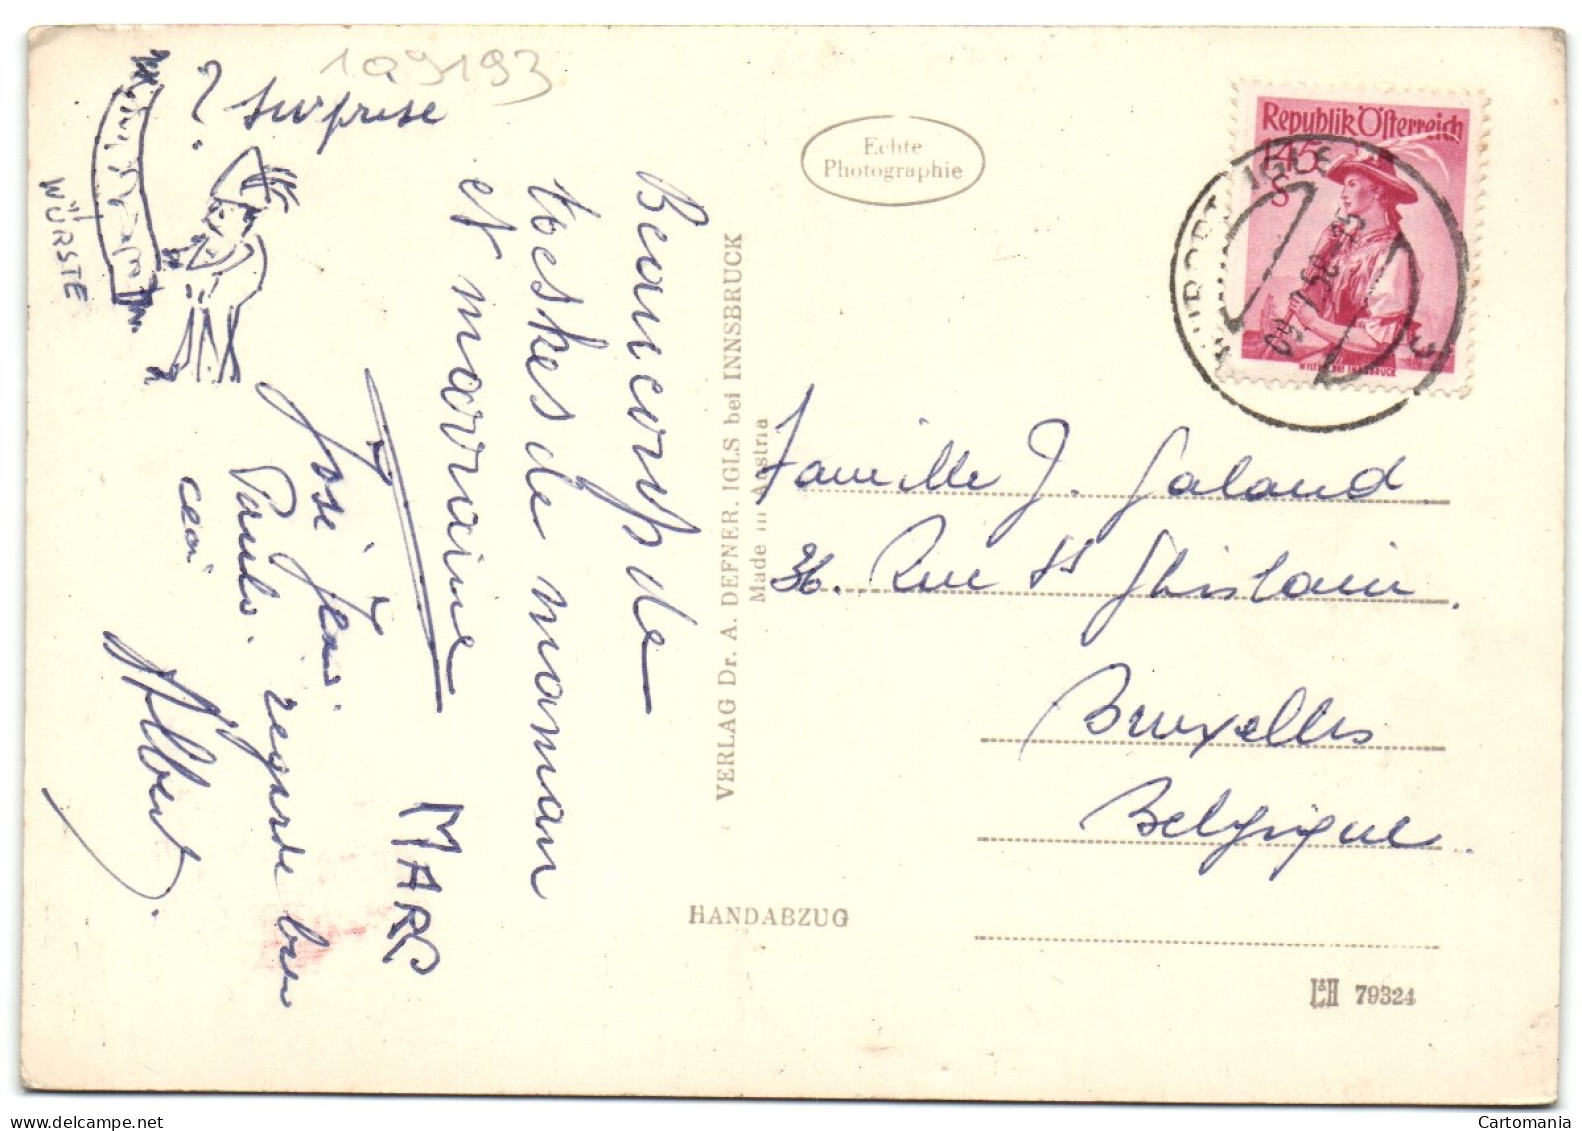 109193
? surprise
WÜRSTE
Beaucoup de
toeskes de maman
et marraine
MARC
José, Jean.
Paulo. regarde bien
ceci
Albert.
Echte
Photographie
VERLAG Dr. A. DEFNER, IGLS bei INNSBRUCK
Made in Austria
HANDABZUG
Republik Österreich
1.45
S
WILTEN BEI INNSBRUCK
IGLS
Famille J. Galand
36. Rue St Ghislain.
Bruxelles
Belgique.
L&H 79324
Cartomania